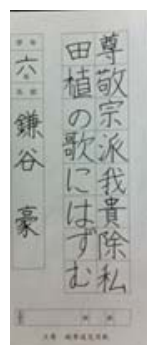 尊敬宗派我貴除私
田植の歌にはずむ
六
鎌谷 豪